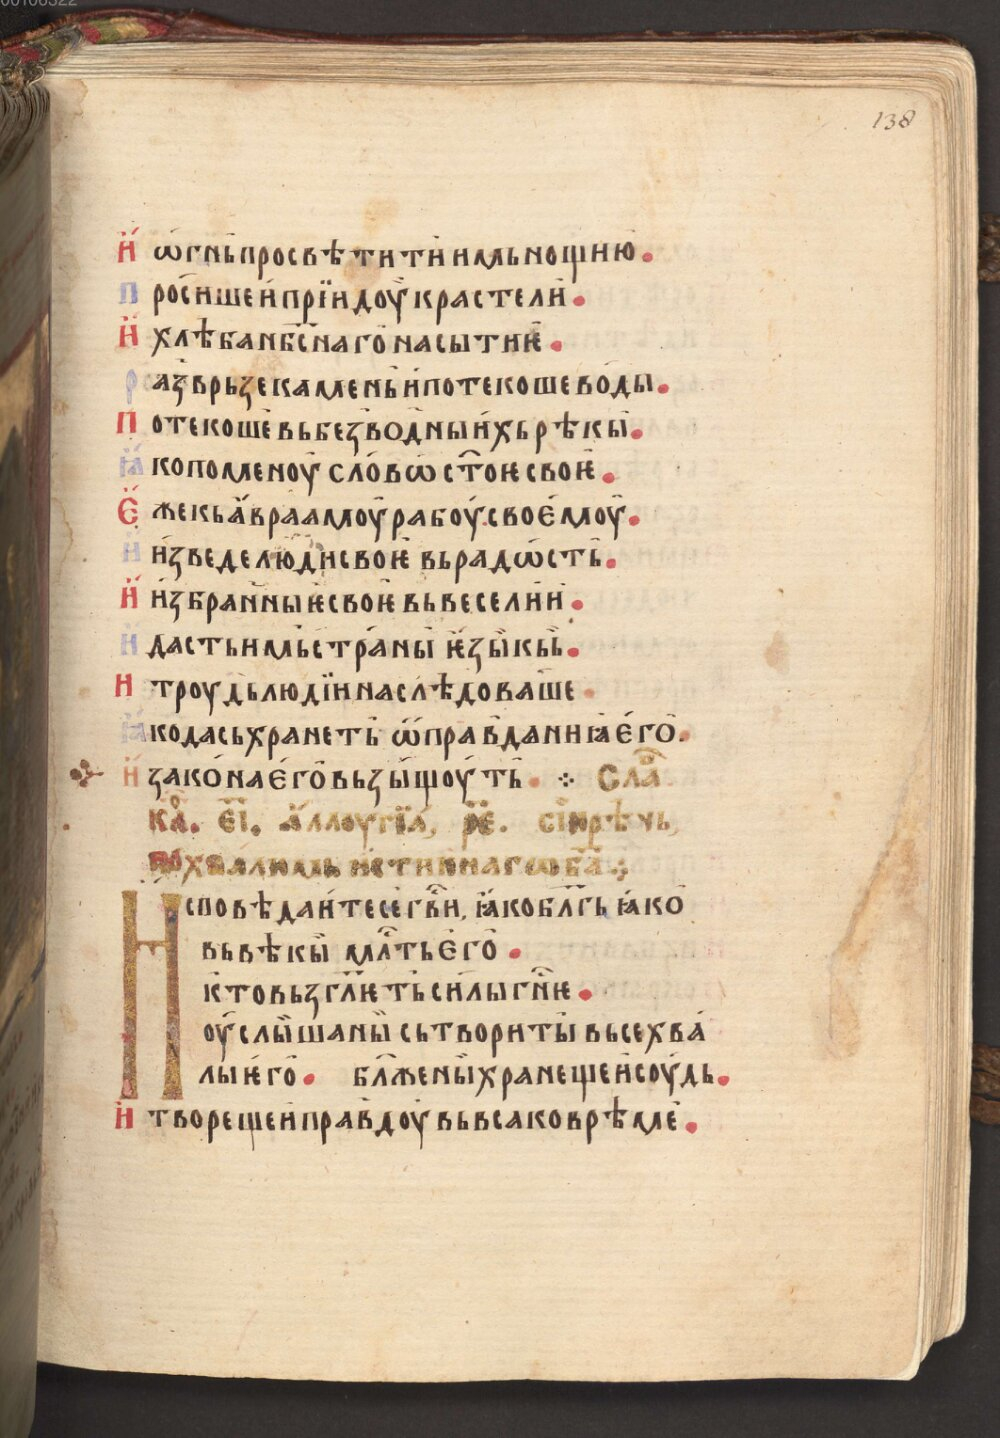 00106322
138
И҆ ѡ҆гнь просвѣтити имь нощию.
Просише и҆ прїидоу красте ли.
И҆ хлѣба нбснаго насыти ѥ.
Разврьзе камень и҆ потекоше воды.
Потекоше вь безводныи҆хь рѣкы.
Ꙗко помену слово ст҃оѥ своѥ.
Е҆же кь а҆враамоу рабоу своє҆моу.
И҆ и҆зведе люди своѥ вь радѡсть.
И҆ и҆збранныѥ своѥ вь веселии.
И҆ дасть имь страны ѥзыкь.
И троудь людїи наслѣдоваше.
Ꙗко да сьхранеть ѡ҆правданиꙗ є҆го.
И҆ закона є҆го вьзыщоуть. Сла
ка. еі. а҆ллоугїа, ре. сі҆ирѣчь,
похвалимь истиннаго ба
Исповѣдаите се гви, ꙗко блгь ꙗко
вь вѣкы млть є҆го.
Кто вьзглѥть силы гнѥ.
оуслышаны сьтворить вьсе хва
лы ѥго. блжены хранещеи соудь.
И҆ творещеи правдоу вь всако врѣме.